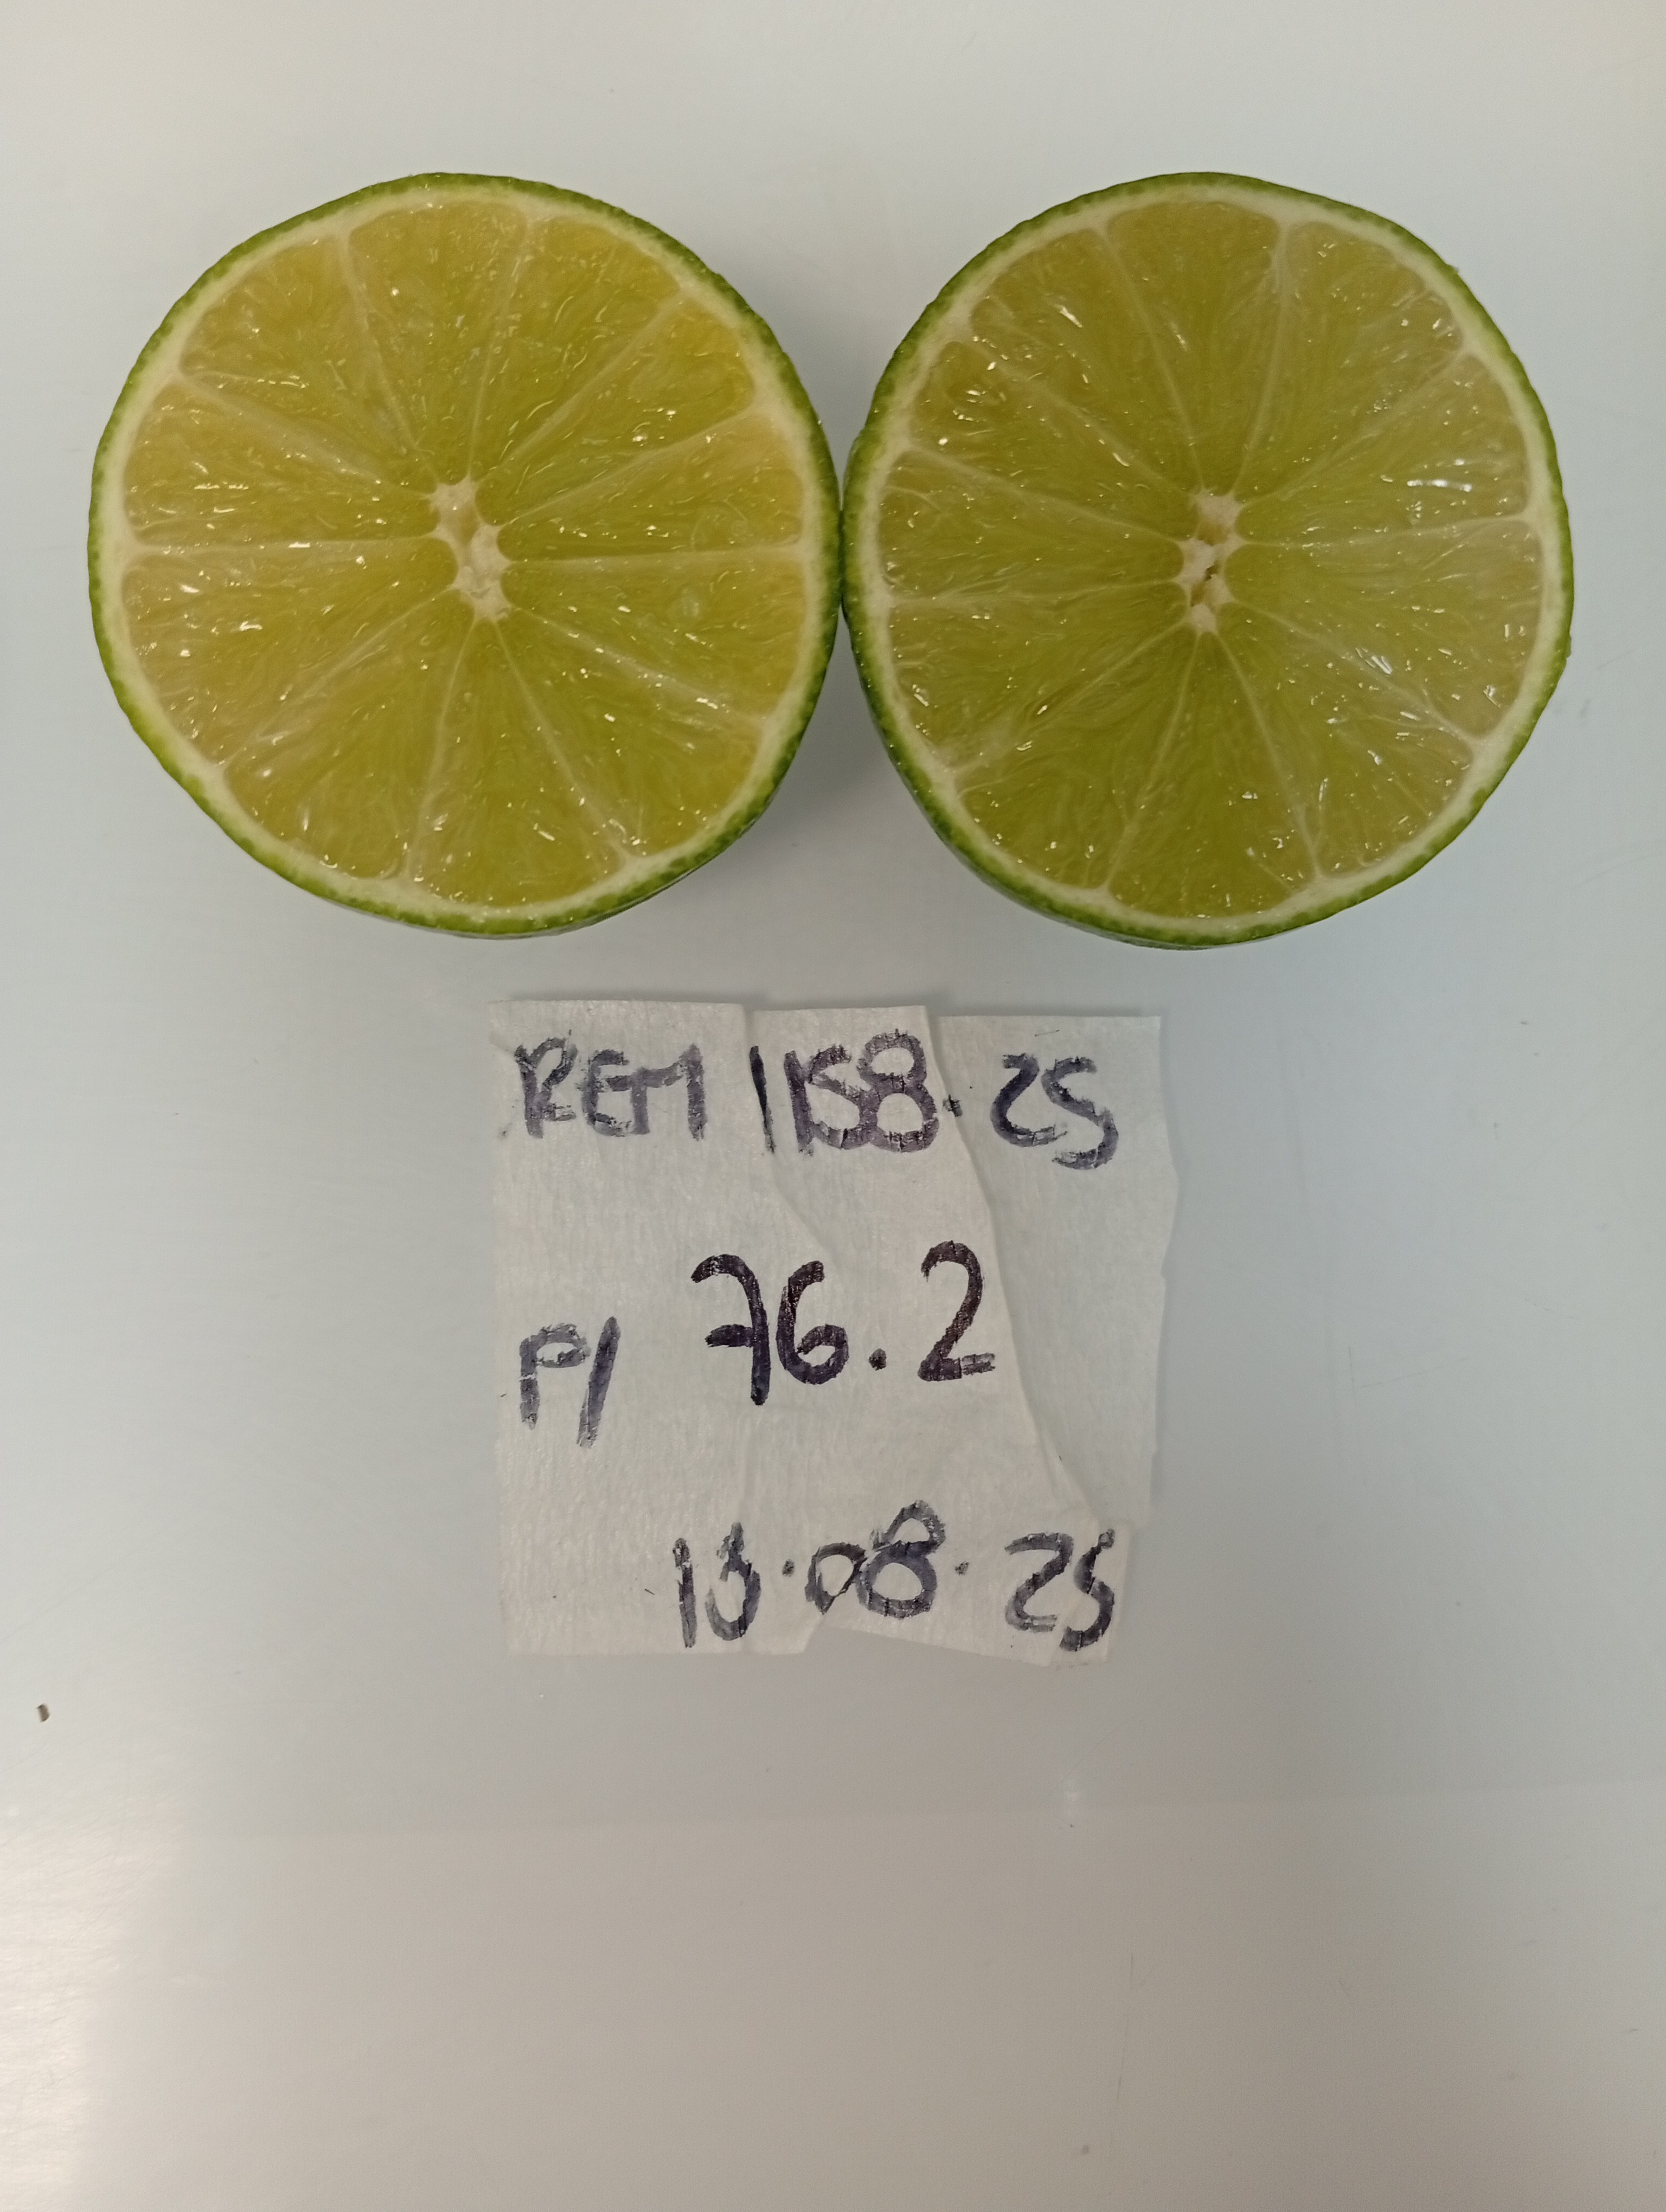 REM 1158.25
P/ 76.2
13.08.25